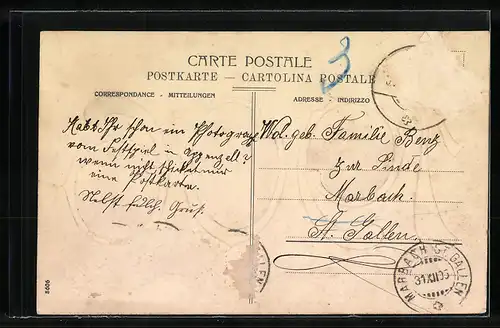 CARTE POSTALE
POSTKARTE — CARTOLINA POSTALE
CORRESPONDANCE - MITTEILUNGEN
ADRESSE - INDIRIZZO
Habt Ihr schon ein Photograph
vom Festspiel in Appenzell?
wenn nicht schicket mir
eine Postkarte.
Nebst frdlch. Gruß.
Wol. geb. Familie Benz
zur Linde
Marbach.
St. Gallen.
MARBACH (ST. GALLEN)
31.XII.05
LLEN
5606